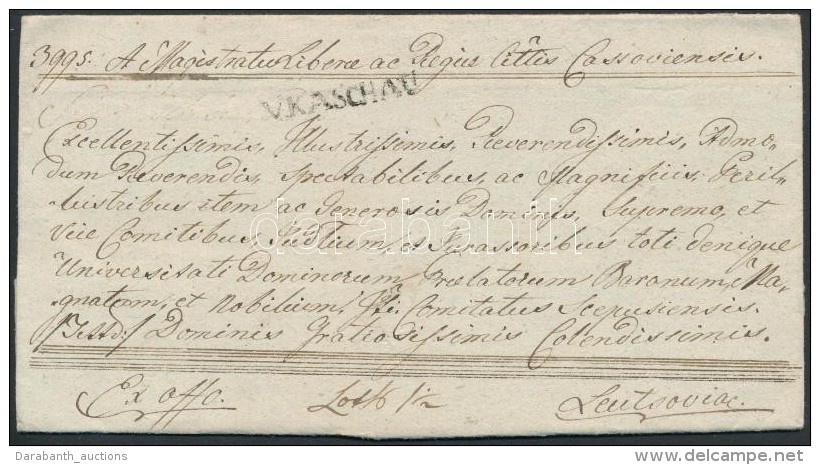 3995. A Magistratu Liberæ ac Regiæ Cittis Cassoviensis.
V.KASCHAU
Excellentissimis, Illustrissimis, Reverendissimis, Admo-
dum Reverendis, spectabilibus, ac Magnificis, Peril-
lustribus item ac Generosis Dominis, Supremo, et
Vice Comitibus, Judlium, et Jurassoribus toti denique
Universitati Dominorum Prælatorum Baronum, Ma-
gnatum, et Nobilium, Comitatus Scepusiensis.
Dominis Gratiosissimis Colendissimis.
Ex offo. Loth 1/2 Leutsoviæ.
darabanth
Darabanth_auctions
www.delcampe.net